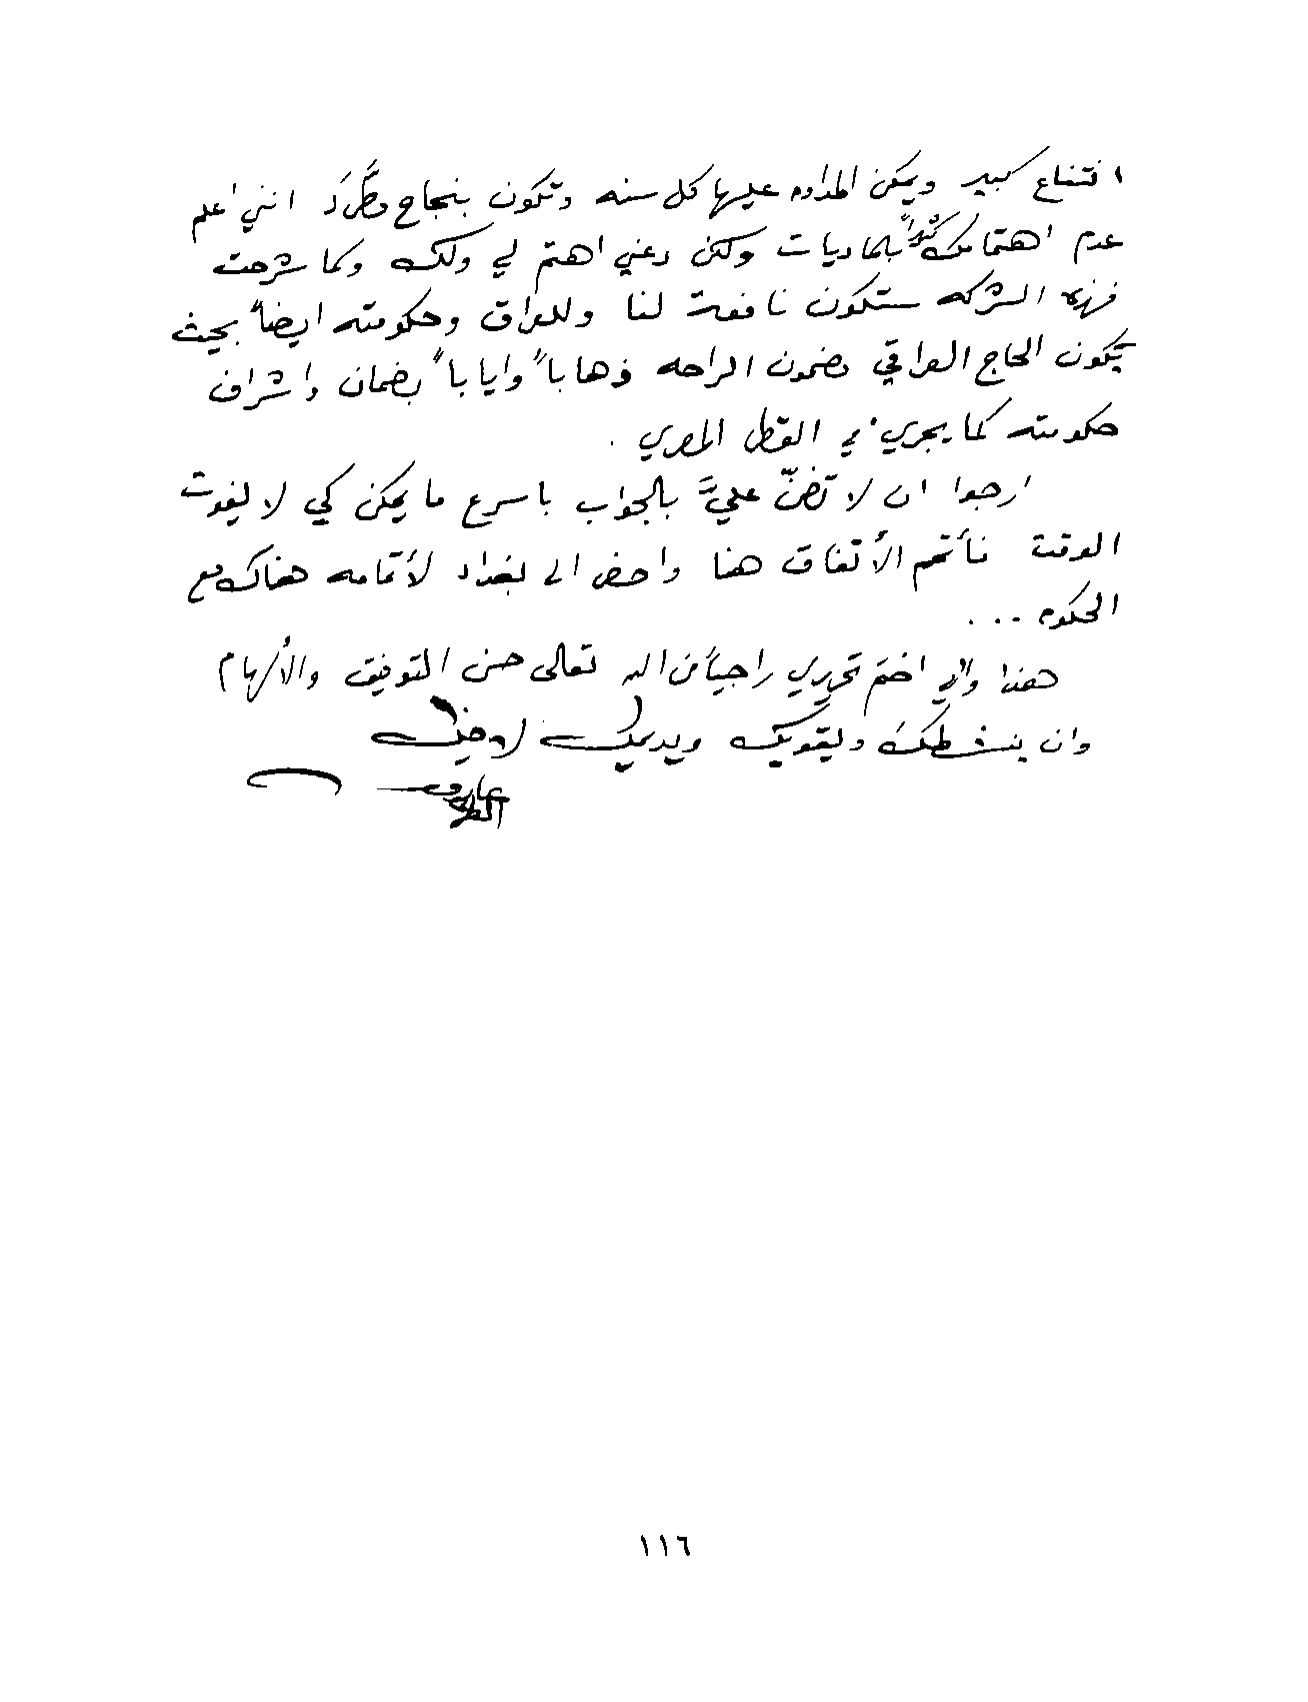 اقتناع كبير ويمكن المداومه عليها كل سنه وتكون بنجاح مطَّرَد انني اعلم
عدم اهتمامك كثيراً بالماديات ولكن دعني اهتم لي ولك وكما شرحت
فهذه الشركه ستكون نافعة لنا وللعراق وحكومته ايضاً بحيث
يكون الحاج العراقي مضمون الراحه ذهاباً واياباً بضمان واشراف
حكومته كما يجري في القطر المصري .
ارجوا ان لا تضنّ عليَّ بالجواب باسرع ما يمكن كي لا يفوت
الوقت فأتمم الأتفاق هنا واحضر الى بغداد لأتمامه هناك مع
الحكومه ...
هذا واني اختم تحريري راجياً من الله تعالى حسن التوفيق والألهام
وان ينشطك ويقويك ويديمك لأخيك
عارف
١١٦